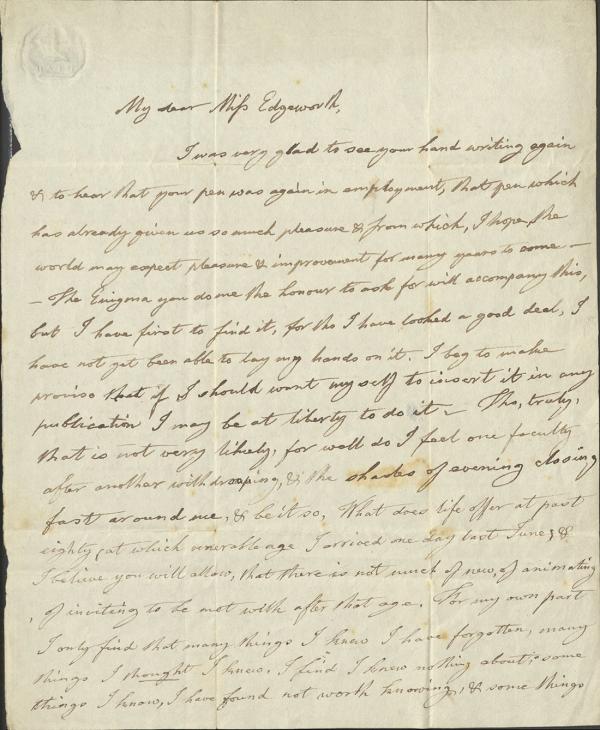 My dear Miss Edgeworth,
I was very glad to see your hand writing again
& to hear that your pen was again in employment, that pen which
has already given us so much pleasure & from which, I hope, the
world may expect pleasure & improvement for many years to come —
— The Enigma you do me the honour to ask for will accompany this,
but I have first to find it, for tho I have looked a good deal, I
have not yet been able to lay my hands on it. I beg to make
proviso that if I should want myself to insert it in any
publication I may be at liberty to do it — Tho, truly,
that is not very likely, for well do I feel one faculty
after another withdrawing, & the shades of evening closing
fast around me, & be it so. What does life offer at past
eighty, at which venerable age I arrived one day last June; &
I believe you will allow, that there is not much of new, of animating
, of inviting to be met with after that age. For my own part
I only find that many things I knew I have forgotten, many
things I thought I knew, I find I knew nothing about; some
things I know, I have found not worth knowing, & some things